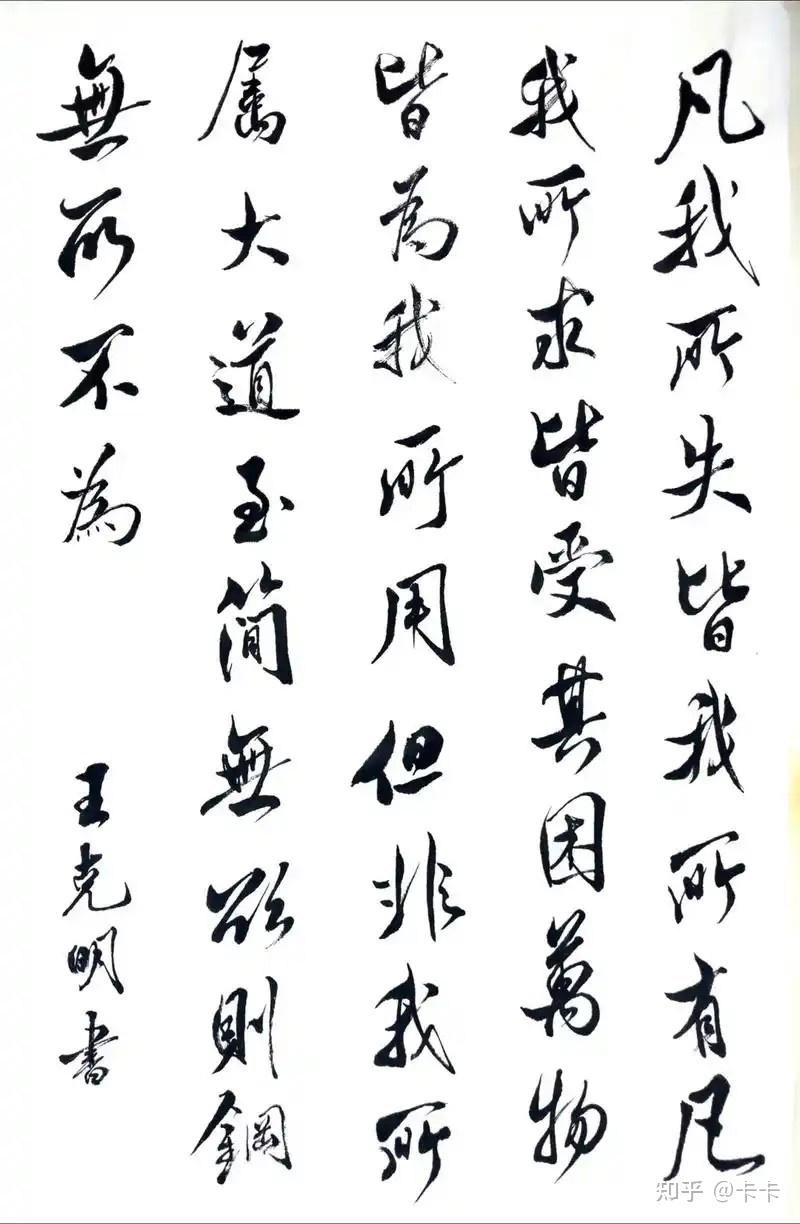 凡我所失皆我所有凡
我所求皆受其困萬物
皆為我所用但非我所
屬大道至简無欲則鋼
無所不為
王克明書
知乎 @卡卡